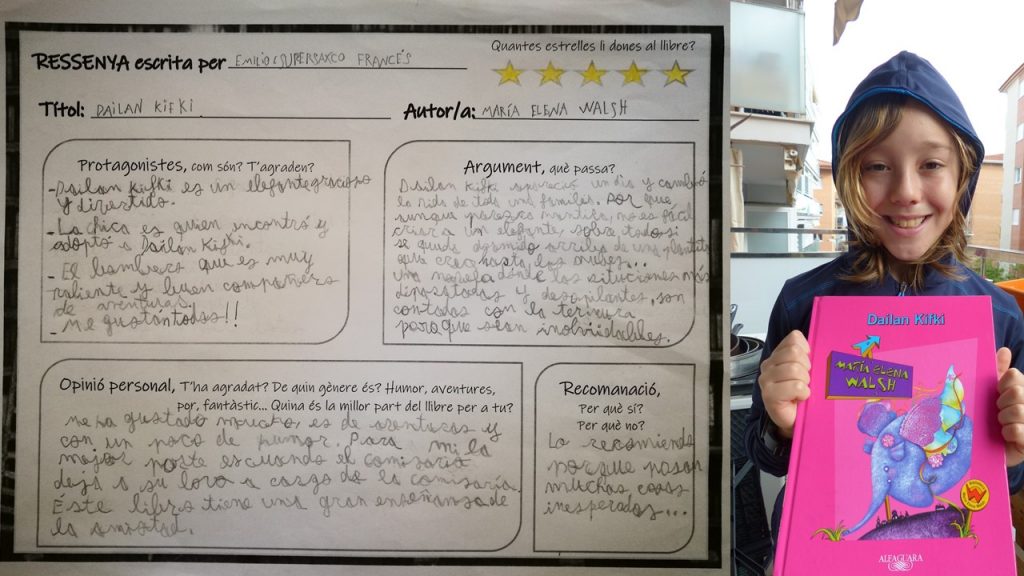 Quantes estrelles li dones al llibre?
RESSENYA escrita per EMILIO SUPERSAXCO FRANCÉS
Títol: DAILAN KIFKI
Autor/a: MARÍA ELENA WALSH
Protagonistes, com són? T'agraden?
- Dailan Kifki es un elefante gracioso
y divertido.
- La chica es quien encontró y
adoptó a Dailan Kifki.
- El bombero que es muy
valiente y buen compañero
de aventuras.
- Me gustan todas!!
Argument, què passa?
Dailan Kifki apareció un día y cambió
la vida de toda una familia. Por que
aunque parezca mentira, no es fácil
criar a un elefante, sobre todo si
se queda dormido arriba de una plantita
que crec hasta las nubes...
una novela donde las situciones más
disparatadas y desopilantes, son
contadas con la ternura
para que sean inolvidables.
Opinió personal, T'ha agradat? De quin gènere és? Humor, aventures,
por, fantàstic... Quina és la millor part del llibre per a tu?
me ha gustado mucho, es de aventuras y
con un poco de humor. Para mi la
mejor parte es cuando el comisario
deja a su lora a cargo de la comisaría.
Este libro tiene una gran enseñanza de
la amistad.
Recomanació,
Per què sí?
Per què no?
Lo recomiendo
porque pasan
muchas cosas
inesperadas...
Dailan Kifki
MARÍA ELENA
WALSH
ALFAGUARA